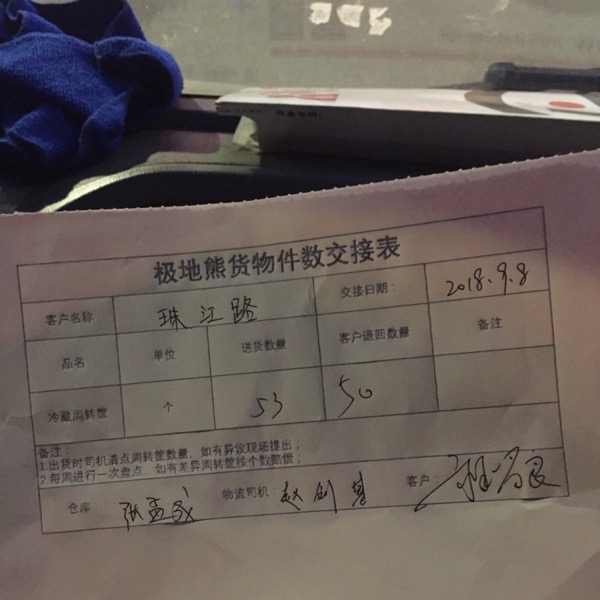 极地熊货物件数交接表
客户名称 珠江路 交接日期: 2018.9.8
品名 单位 送货数量 客户退回数量 备注
冷藏周转筐 个 53 50
备注:
1.出货时司机清点周转筐数量,如有异议现场提出,
2.每周进行一次盘点,如有差异周转筐按个数赔偿;
仓库: 张孟成 物流司机: 赵剑 客户: